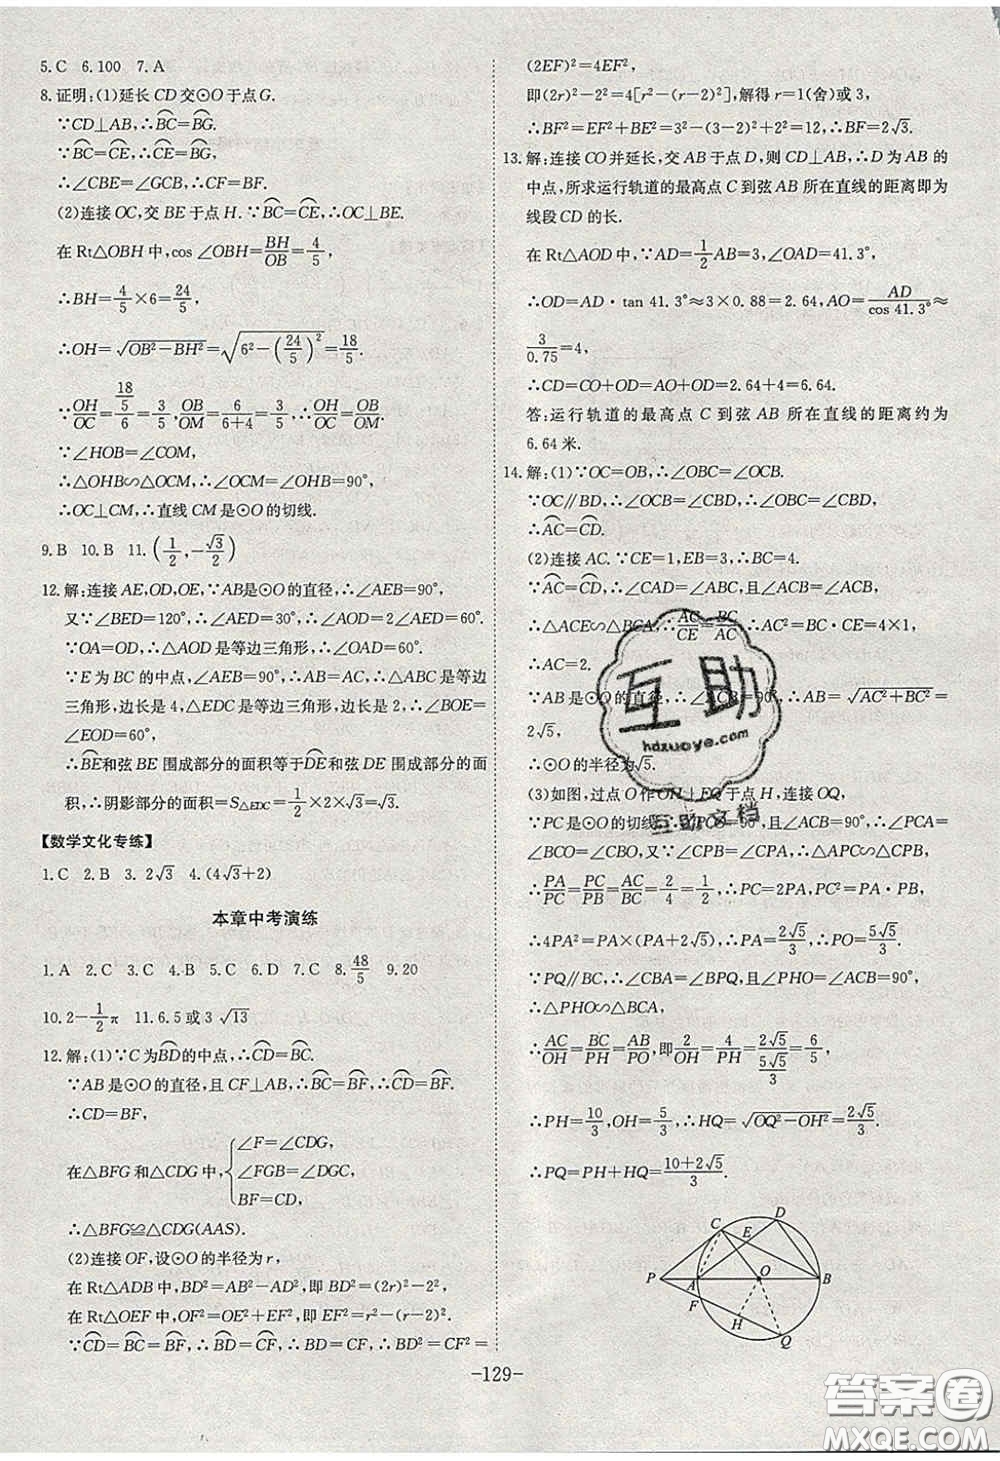 5.C 6.100 7.A
8.证明:(1)延长CD交⊙O于点G.
∵CD⊥AB,∴BC⌒=BG⌒.
∵BC⌒=CE⌒,∴CE⌒=BG⌒,
∴∠CBE=∠GCB,∴CF=BF.
(2)连接OC,交BE于点H.∵BC⌒=CE⌒,∴OC⊥BE.
在Rt△OBH中,cos∠OBH=BH/OB=4/5,
∴BH=4/5×6=24/5,
∴OH=√(OB²-BH²)=√(6²-(24/5)²)=18/5.
∵OH/OC=(18/5)/6=3/5,OB/OM=6/(6+4)=3/5,∴OH/OC=OB/OM.
∵∠HOB=∠COM,
∴△OHB∽△OCM,∴∠OCM=∠OHB=90°,
∴OC⊥CM,∴直线CM是⊙O的切线.
9.B 10.B 11.(1/2,-√3/2)
12.解:连接AE,OD,OE,∵AB是⊙O的直径,∴∠AEB=90°,
又∵∠BED=120°,∴∠AED=30°,∴∠AOD=2∠AED=60°.
∵OA=OD,∴△AOD是等边三角形,∴∠OAD=60°.
∵E为BC的中点,∠AEB=90°,∴AB=AC,∴△ABC是等边
三角形,边长是4,△EDC是等边三角形,边长是2,∴∠BOE=
∠EOD=60°,
∴BE⌒和弦BE围成部分的面积等于DE⌒和弦DE围成部分的面
积,∴阴影部分的面积=S△EDC=1/2×2×√3=√3.
【数学文化专练】
1.C 2.B 3.2√3 4.(4√3+2)
本章中考演练
1.A 2.C 3.C 4.B 5.C 6.D 7.C 8.48/5 9.20
10.2-1/2π 11.6.5或3√13
12.解:(1)∵C为BD⌒的中点,∴CD⌒=BC⌒.
∵AB是⊙O的直径,且CF⊥AB,∴BC⌒=BF⌒,∴CD⌒=BF⌒.
∴CD=BF,
在△BFG和△CDG中,{∠F=∠CDG,
∠FGB=∠DGC,
BF=CD,
∴△BFG≌△CDG(AAS).
(2)连接OF,设⊙O的半径为r,
在Rt△ADB中,BD²=AB²-AD²,即BD²=(2r)²-2²,
在Rt△OEF中,OF²=OE²+EF²,即EF²=r²-(r-2)².
∵CD⌒=BC⌒=BF⌒,∴BD⌒=CF⌒,∴BD=CF,∴BD²=CF²=
(2EF)²=4EF²,
即(2r)²-2²=4[r²-(r-2)²],解得r=1(舍)或3,
∴BF²=EF²+BE²=3²-(3-2)²+2²=12,∴BF=2√3.
13.解:连接CO并延长,交AB于点D,则CD⊥AB,∴D为AB的
中点,所求运行轨道的最高点C到弦AB所在直线的距离即为
线段CD的长.
在Rt△AOD中,∵AD=1/2AB=3,∠OAD=41.3°,
∴OD=AD·tan 41.3°≈3×0.88=2.64,AO=AD/cos 41.3°≈
3/0.75=4,
∴CD=CO+OD=AO+OD=2.64+4=6.64.
答:运行轨道的最高点C到弦AB所在直线的距离约为
6.64米.
14.解:(1)∵OC=OB,∴∠OBC=∠OCB.
∵OC∥BD,∴∠OCB=∠CBD,∴∠OBC=∠CBD,
∴AC⌒=CD⌒.
(2)连接AC.∵CE=1,EB=3,∴BC=4.
∵AC⌒=CD⌒,∴∠CAD=∠ABC,且∠ACE=∠BCA,
∴△ACE∽△BCA,∴AC/CE=BC/AC,∴AC²=BC·CE=4×1,
∴AC=2.
∵AB是⊙O的直径,∴∠ACB=90°,∴AB=√(AC²+BC²)=
2√5,
∴⊙O的半径为√5.
(3)如图,过点O作OH⊥FQ于点H,连接OQ,
∵PC是⊙O的切线,∴∠PCO=90°,且∠ACB=90°,∴∠PCA=
∠BCO=∠CBO,且∠CPB=∠CPA,∴△APC∽△CPB,
∴PA/PC=PC/PB=AC/BC=2/4=1/2,∴PC=2PA,PC²=PA·PB,
∴4PA²=PA×(PA+2√5),∴PA=2√5/3,∴PO=5√5/3.
∵PQ∥BC,∴∠CBA=∠BPQ,且∠PHO=∠ACB=90°,
∴△PHO∽△BCA,
∴AC/OH=BC/PH=AB/PO,即2/OH=4/PH=2√5/(5√5/3)=6/5,
∴PH=10/3,OH=5/3,∴HQ=√(OQ²-OH²)=2√5/3,
∴PQ=PH+HQ=(10+2√5)/3.
C D E P A O B F H Q
-129-
互助
hdzuoye.com
互助文档
答案卷
MXQE.COM